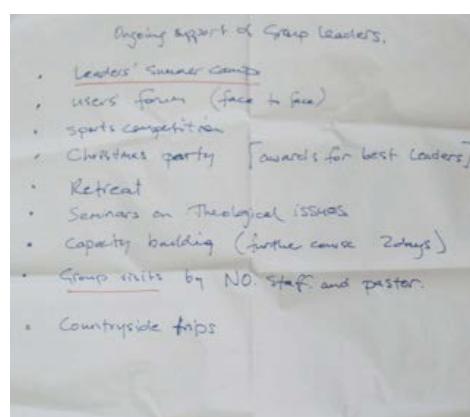 Ongoing support of Group Leaders.
• Leaders' Summer camp
• users' forum (face to face)
• sports competition
• Christmas party [awards for best Leaders]
• Retreat
• Seminars on Theological issues
• Capacity building (further course 2days)
• Group visits by NO. staff and pastor.
• Countryside trips